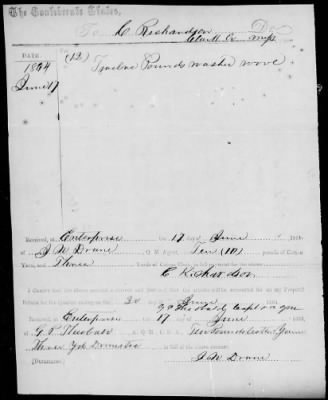 The Confederate States,
To C Richardson Dr.
Clark Co Miss
DATE.
1864 (12)
June 17 Twelve Pounds washed wool
Received, at Enterprise on 17 of June 186
of J W Drane Q. M. Agent, Ten (10) pounds of Cotton
Yarn, and Three Yards of Cotton Cloth, in full payment for the above
C Richardson
I CERTIFY that the above account is correct and just; and that the articles will be accounted for on my Property
Return for the Quarter ending on the 30 of June 186
Capt & qm
Received, at Enterprise 17 of June 186
of G P Theobald Ten Pounds Cotton Yarn
Three Yds Domestic
(DUPLICATE.) J W Drane